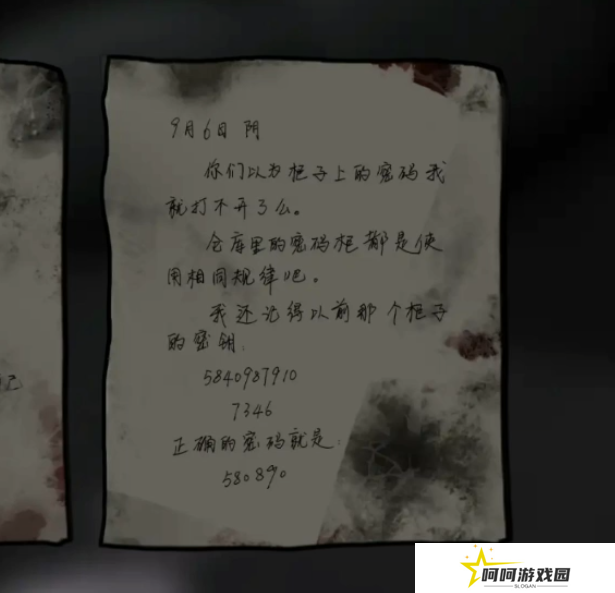 9月6日 阴
你们以为柜子上的密码我
就打不开了么。
仓库里的密码柜都是使
用相同规律吧。
我还记得以前那个柜子
的密钥：
5840987910
7346
正确的密码就是：
580890
己
呵呵游戏园
SLOGAN